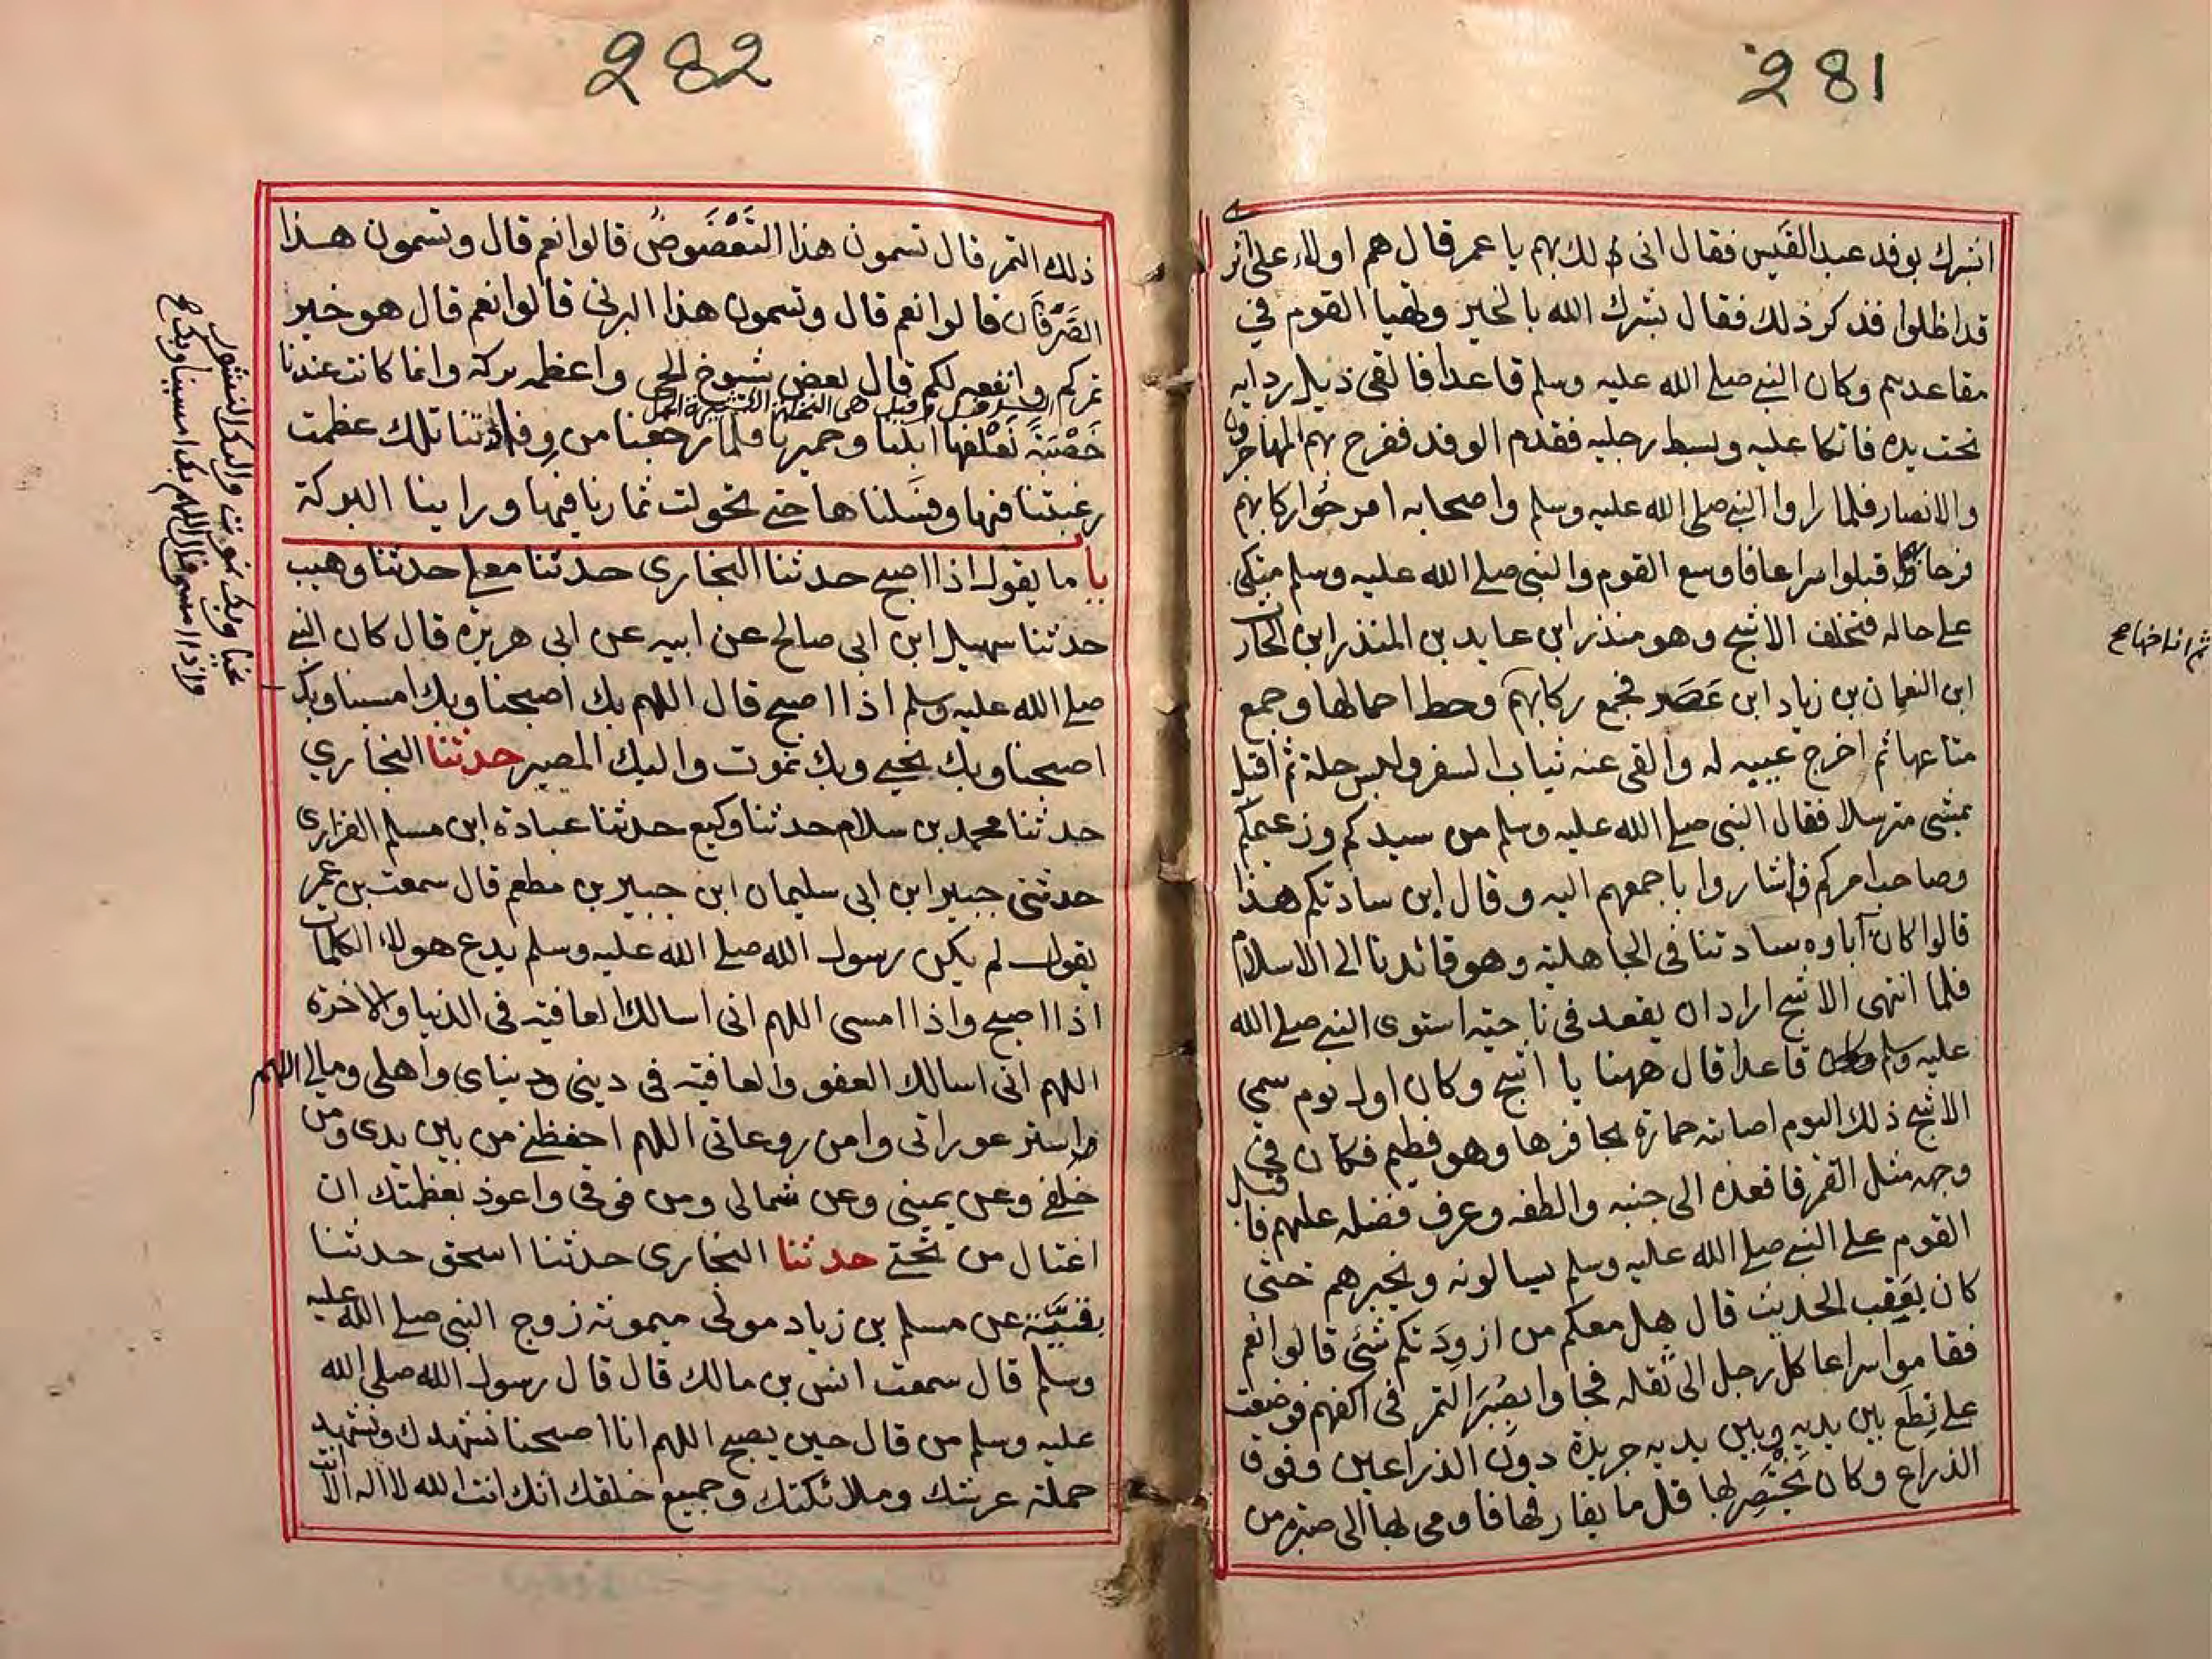 281
ابشرك بوفد عبد القيس فقال انى لك بهم يا عمر قال هم اولاء على اثر
قد اظلوا فذكر ذلك فقال بشرك الله بالخير وتهيا القوم في
مقاعدهم وكان النبي صلى الله عليه وسلم قاعدا فالقى ذيل ردايه
تحت يده فاتكا عليه وبسط رجليه فقدم الوفد ففرح بهم المهاجرون
والانصار فلما راوا النبي صلى الله عليه وسلم واصحابه امرحوا ركابهم
فرحا قبلوا سراعا فاوسع القوم والنبي صلى الله عليه وسلم متكى
على حاله فتخلف الاشج وهو منذر ابن عايد بن المنذر ابن الحارث
ابن النعمان بن زياد ابن عَصَر فجمع ركابهم وحط احمالها وجمع
متاعها ثم اخرج عيبيه له والقى عنه ثياب السفر ولبس حلة ثم اقبل
يمشي مترسلا فقال النبي صلى الله عليه وسلم من سيدكم وزعيمكم
وصاحب امركم فاشاروا باجمعهم اليه وقال ابن سادتكم هذا
قالوا كان آباوه سادتنا في الجاهلية وهو قائدنا الى الاسلام
فلما انتهى الاشج اراد ان يقعد في ناحية استوى النبي صلى الله
عليه وسلم قاعدا قال ههنا يا اشج وكان اول يوم سمي
الاشج ذلك اليوم اصابته حمارة بحافرها وهو فطيم فكان في
وجهه مثل القمر فاقعده الى جنبه والطفه وعرف فضله عليهم فاقبل
القوم على النبي صلى الله عليه وسلم يسالونه ويخبرهم حتى
كان بعقب الحديث قال هل معكم من ازودتكم شئ قالوا نعم
فقاموا سراعا كل رجل الى ثقله فجاوا بصُبَر التمر في اكفهم فوضعت
على نطع بين يديه وبين يديه جريدة دون الذراعين وفوق
الذراع وكان يختصر بها قل ما يفارقها فاومى بها الى صبرة من
ثم اناخها صح
282
ذلك التمر قال تسمون هذا التَعْضَوض قالوا نعم قال وتسمون هذا
الصَّرْفَان قالوا نعم قال وتسمون هذا البرني قالوا نعم قال هو خير
تمركم وانفعه لكم قال بعض شيوخ الحي واعظمه بركة وانما كانت عندنا
خَصْبَة نعلفها ابلنا وحميرنا فلما رجعنا من وفادتنا تلك عظمت
رغبتنا فيها وفسلناها حتى تحولت ثمارنا فيها وراينا البركة
با ما يقول اذا اصبح حدثنا البخاري حدثنا معلى حدثنا وهيب
حدثنا سهيل ابن ابي صالح عن ابيه عن ابي هريرة قال كان النبي
صلى الله عليه وسلم اذا اصبح قال اللهم بك اصبحنا وبك امسينا وبك
اصبحنا وبك نحيى وبك نموت واليك المصير حدثنا البخاري
حدثنا محمد بن سلام حدثنا وكيع حدثنا عبادة ابن مسلم الفزاري
حدثني جبير ابن ابي سليمان ابن جبير بن مطعم قال سمعت بن عمر
يقول لم يكن رسول الله صلى الله عليه وسلم يدع هولاء الكلمات
اذا اصبح واذا امسى اللهم انى اسالك العافية في الدنيا والاخرة
اللهم انى اسالك العفو والعافية في ديني ودنياى واهلي ومالي اللهم
استر عوراتى وامن روعاتى اللهم احفظني من بين يدى ومن
خلفي وعن يميني وعن شمالي ومن فوقي واعوذ بعظمتك ان
اغتال من تحتي حدثنا البخارى حدثنا اسحق حدثنا
بقيَّة عن مسلم بن زياد مولى ميمونة زوج النبي صلى الله عليه
وسلم قال سمعت انس بن مالك قال قال رسول الله صلى الله
عليه وسلم من قال حين يصبح اللهم انا اصبحنا نشهدك ونشهد
حملة عرشك وملائكتك وجميع خلقك انك انت الله لا اله الا انت
نحيا وبك نموت واليك النشور
واذا امسى قال اللهم بك امسينا وبك صح